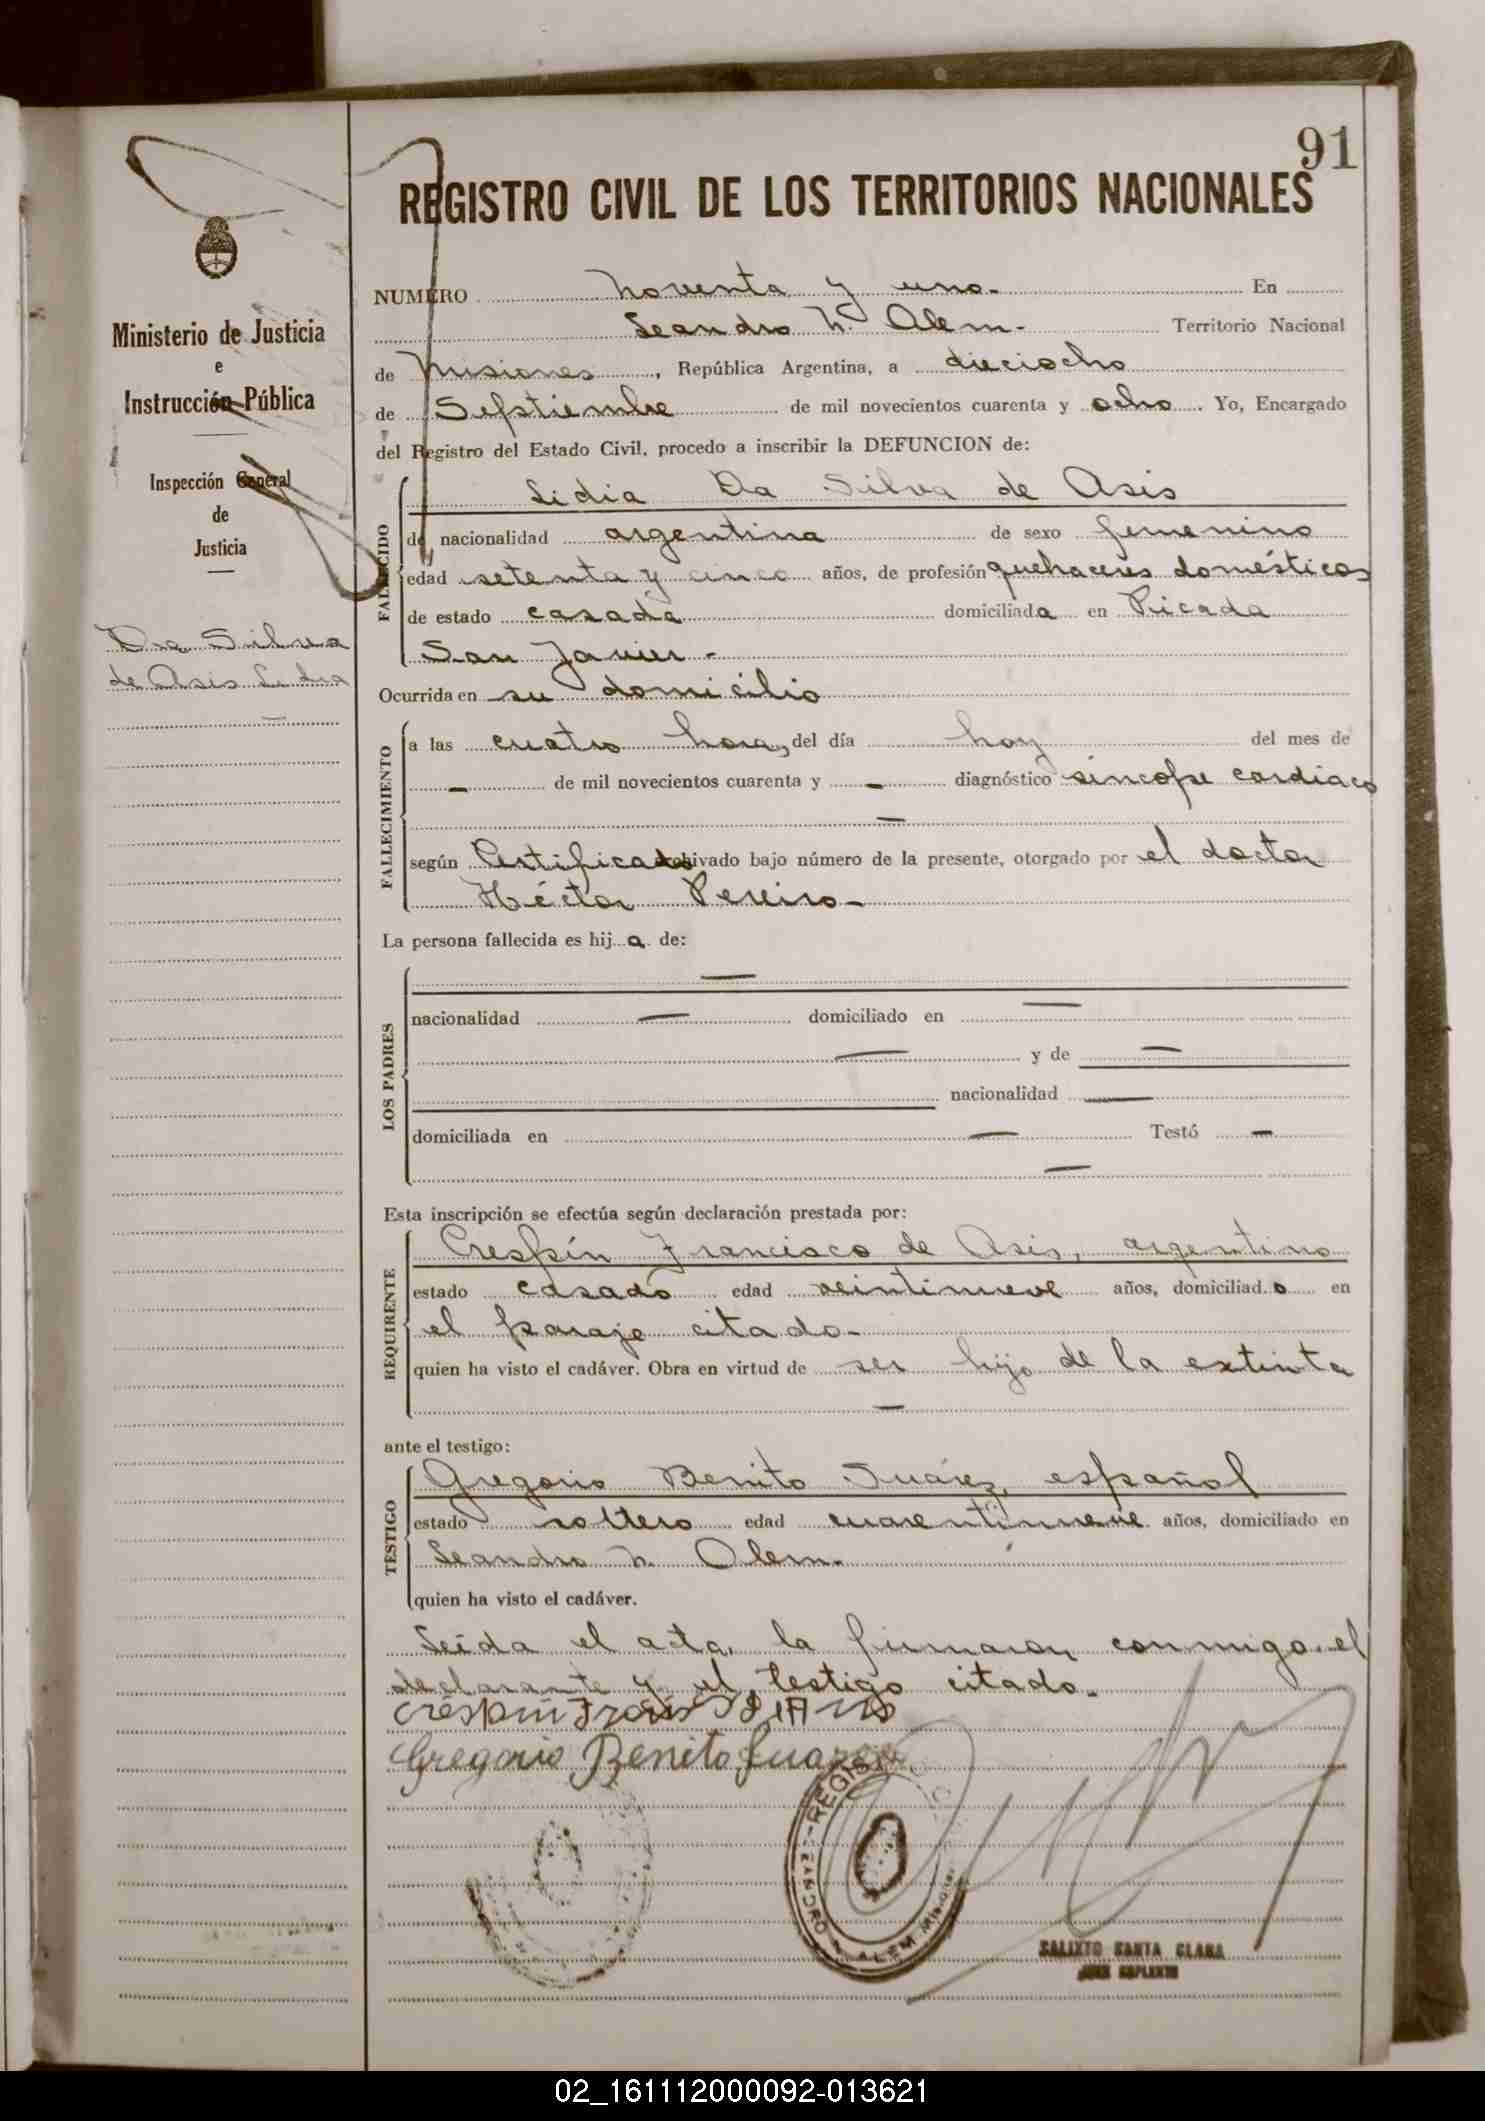 91
REGISTRO CIVIL DE LOS TERRITORIOS NACIONALES
Ministerio de Justicia
e
Instrucción Pública
Inspección General
de
Justicia
Da Silva
de Asis Lidia
NUMERO noventa y uno.- En
Leandro N. Alem.- Territorio Nacional
de Misiones, República Argentina, a dieciocho
de Septiembre de mil novecientos cuarenta y ocho. Yo, Encargado
del Registro del Estado Civil, procedo a inscribir la DEFUNCION de:
FALLECIDO
Lidia Da Silva de Asis
de nacionalidad argentina de sexo femenino
edad setenta y cinco años, de profesión quehaceres domésticos
de estado casada domiciliada en Picada
San Javier.-
Ocurrida en su domicilio
FALLECIMIENTO
a las cuatro horas, del día hoy del mes de
- de mil novecientos cuarenta y - diagnóstico síncope cardiaco
-
según Certificado archivado bajo número de la presente, otorgado por el doctor
Héctor Pereiro.-
La persona fallecida es hija de:
LOS PADRES
—
nacionalidad — domiciliado en —
— y de —
nacionalidad —
domiciliada en — Testó —
—
Esta inscripción se efectúa según declaración prestada por:
REQUIRENTE
Crespín Francisco de Asis, argentino
estado casado edad veintinueve años, domiciliado en
el paraje citado.-
quien ha visto el cadáver. Obra en virtud de ser hijo de la extinta
—
ante el testigo:
TESTIGO
Gregorio Benito Suárez, español
estado soltero edad cuarentinueve años, domiciliado en
Leandro N. Alem.-
quien ha visto el cadáver.
Leída el acta, la firmaron conmigo el
declarante y el testigo citado.-
Crespin
Gregorio Benito Suarez
REGIS
LEANDRO N. ALEM
CALIXTO SANTA CLARA
JUEZ SUPLENTE
02_161112000092-013621